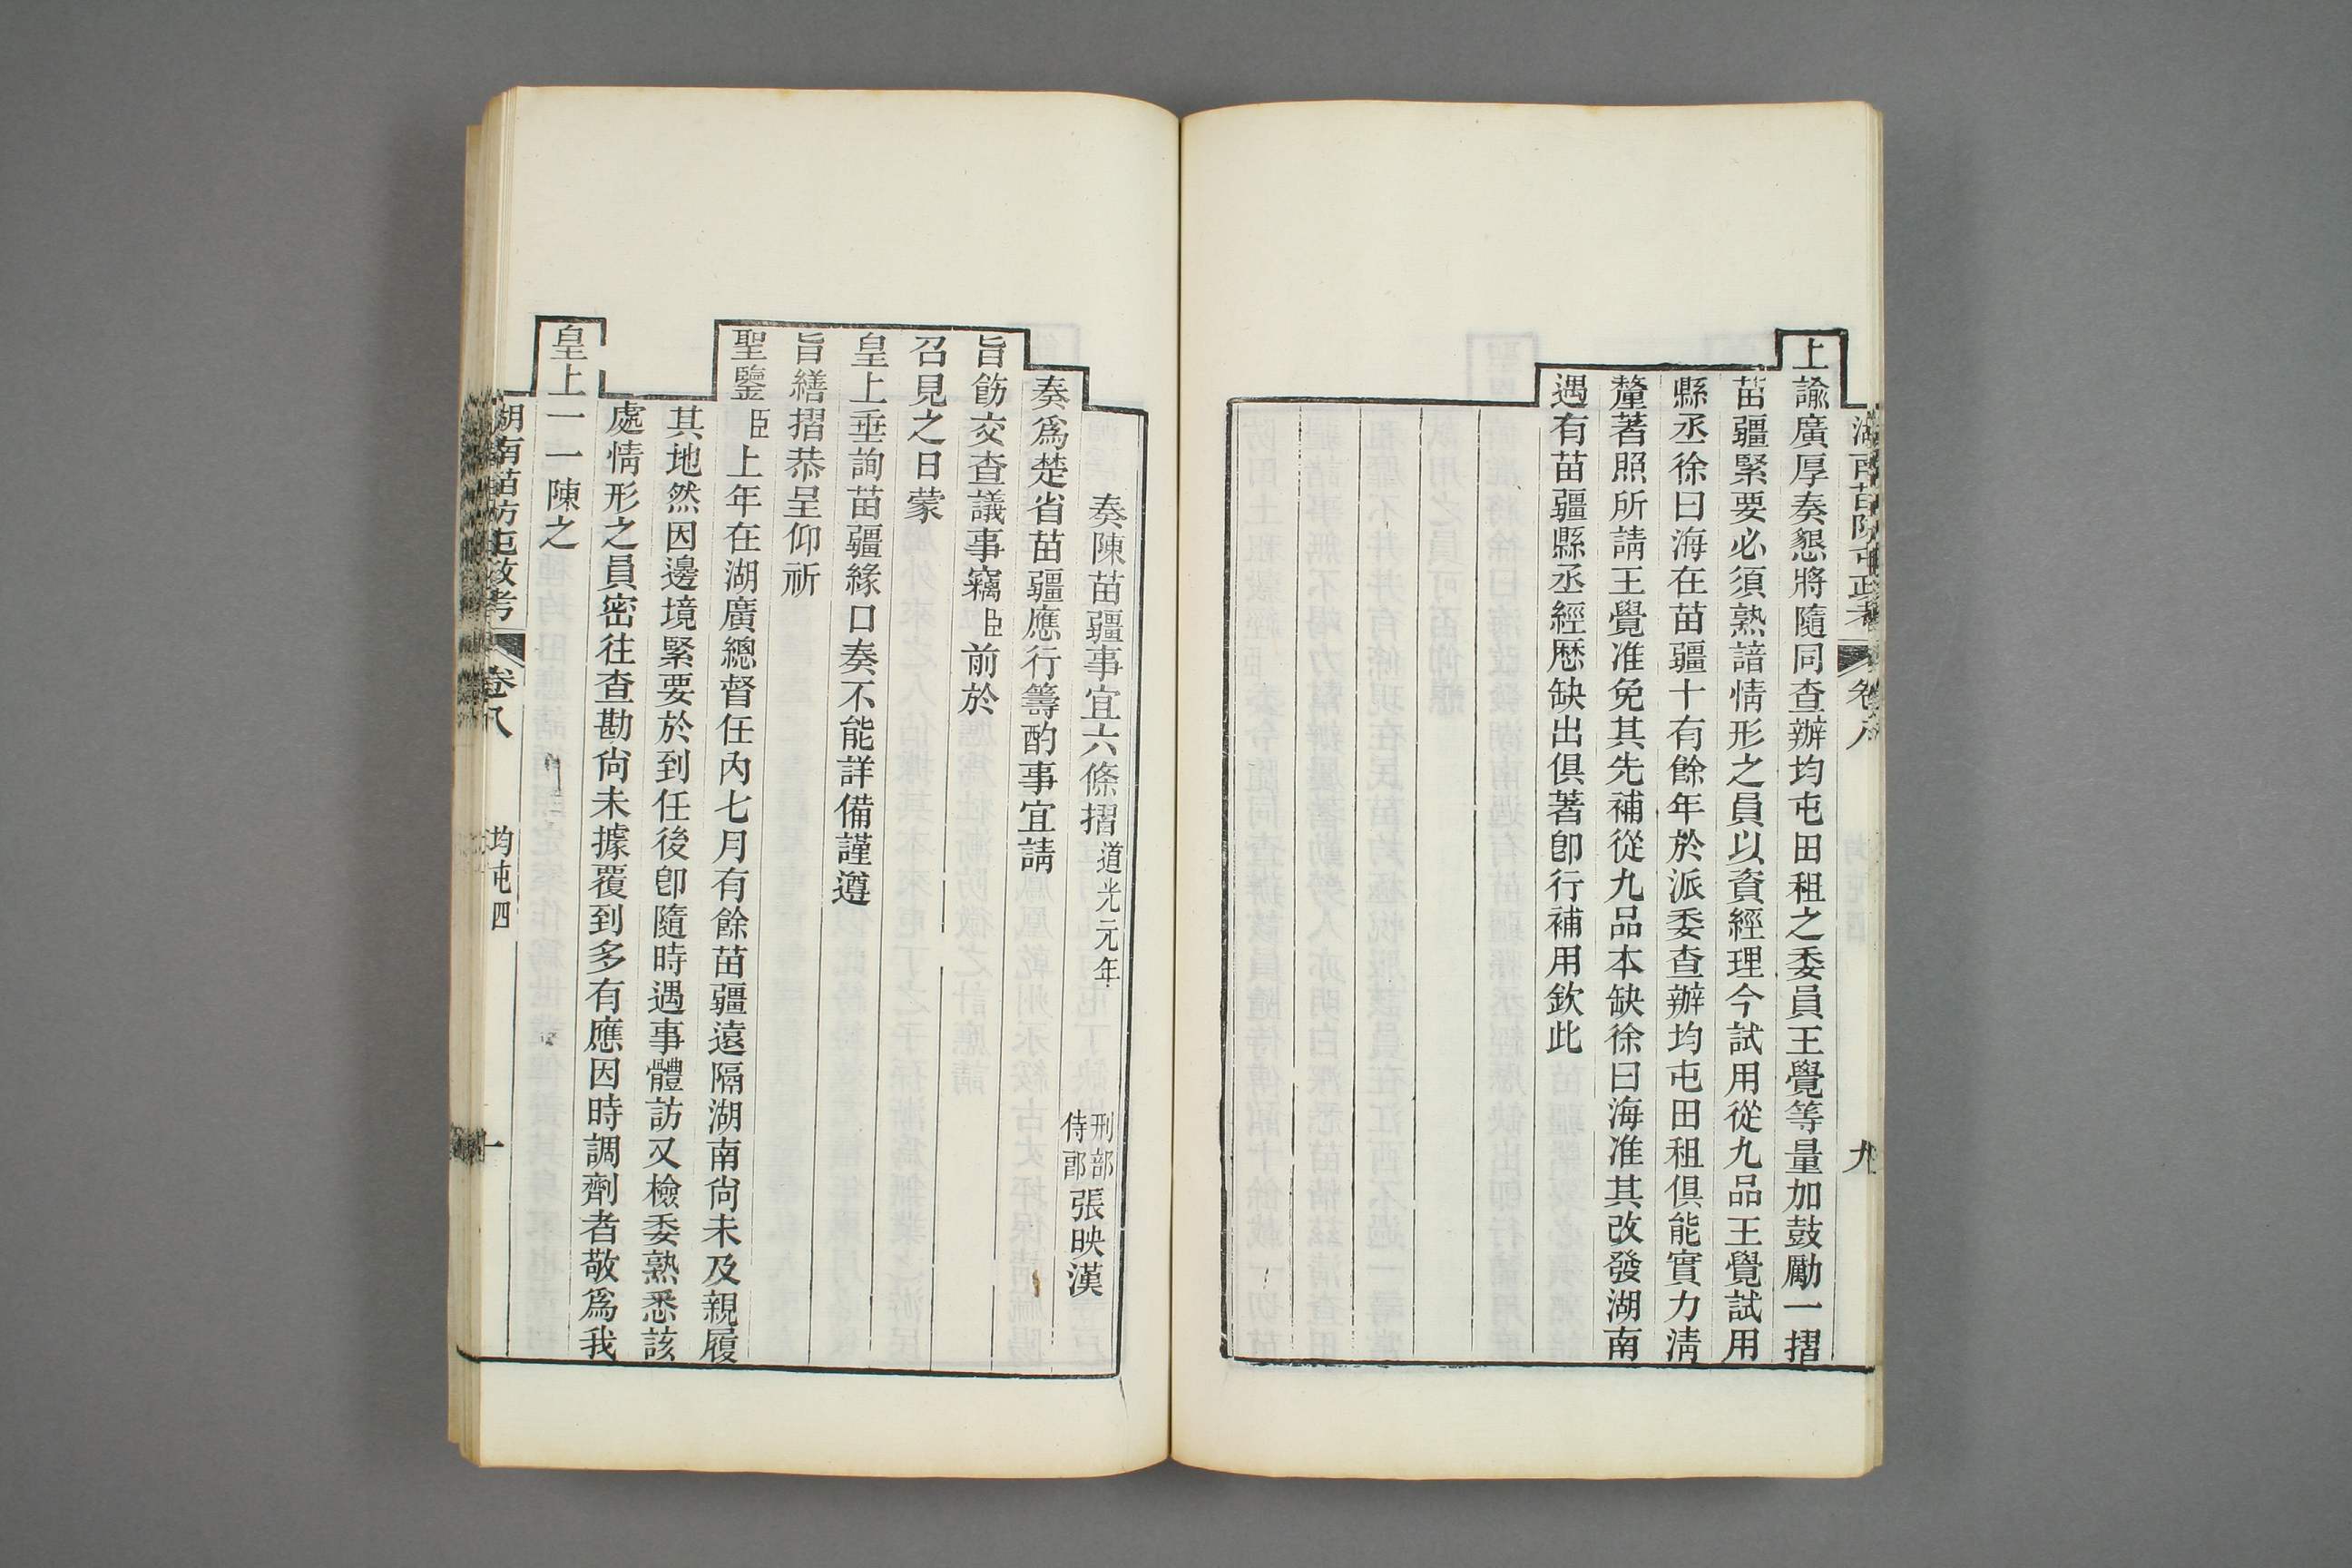 湖南苗防屯政考 卷八 九
上諭廣厚奏懇將隨同查辦均屯田租之委員王覺等量加鼓勵一摺
苗疆緊要必須熟諳情形之員以資經理今試用從九品王覺試用
縣丞徐曰海在苗疆十有餘年於派委查辦均屯田租俱能實力淸
釐著照所請王覺准免其先補從九品本缺徐曰海准其改發湖南
遇有苗疆縣丞經歴缺出俱著卽行補用欽此
奏陳苗疆事宜六條摺 道光元年 刑部侍郎張映漢
奏爲楚省苗疆應行籌酌事宜請
旨飭交查議事竊臣前於
召見之日蒙
皇上垂詢苗疆緣口奏不能詳備謹遵
旨繕摺恭呈仰祈
聖鑒臣上年在湖廣總督任內七月有餘苗疆遠隔湖南尙未及親履
其地然因邊境緊要於到任後卽隨時遇事體訪又檢委熟悉該
處情形之員密往查勘尙未據覆到多有應因時調劑者敬爲我
皇上一一陳之
湖南苗防屯政考 卷八 均屯四 一